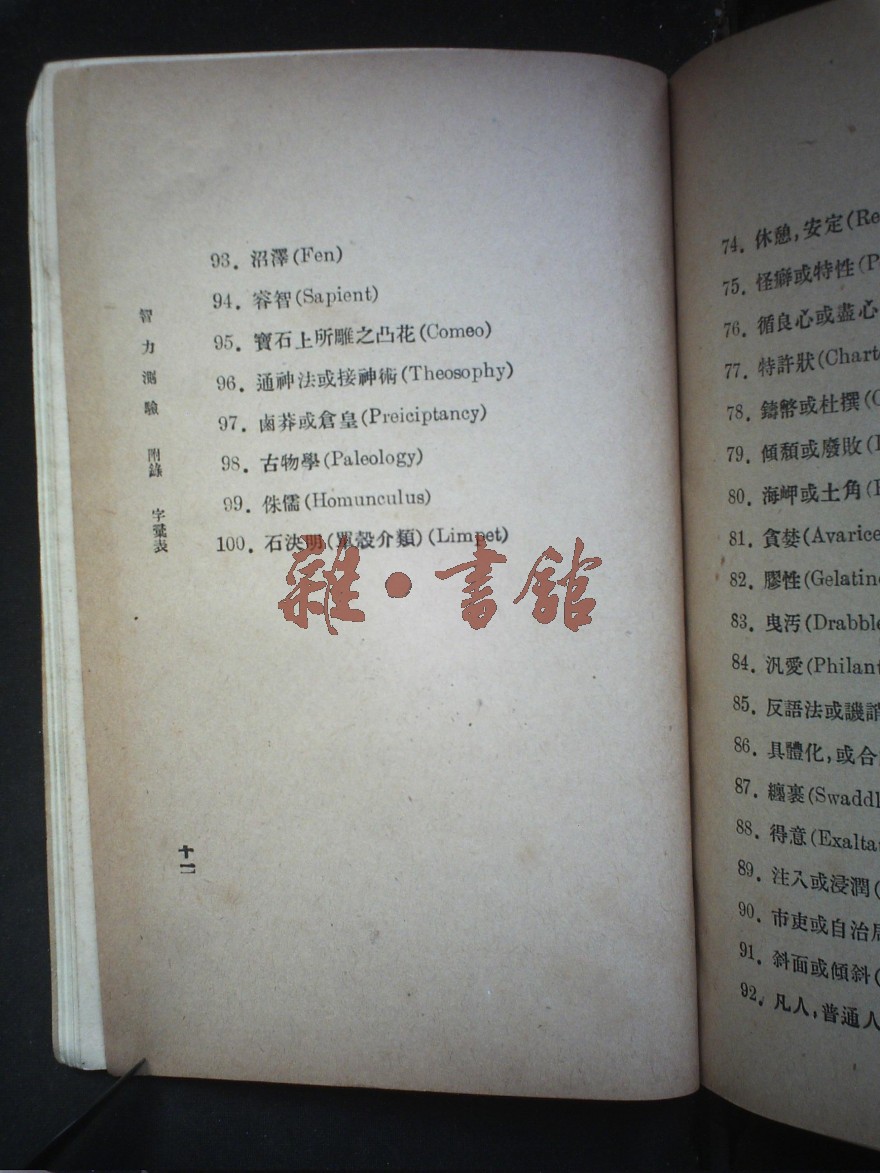 93. 沼澤(Fen)
94. 睿智(Sapient)
95. 寶石上所雕之凸花(Comeo)
96. 通神法或接神術(Theosophy)
97. 鹵莽或倉皇(Preiciptancy)
98. 古物學(Paleology)
99. 侏儒(Homunculus)
100. 石決明(單殼介類)(Limpet)
智力測驗 附錄 字彙表
十二
雜·書館
74. 休憩,安定(Re
75. 怪癖或特性(P
76. 循良心或盡心
77. 特許狀(Chart
78. 鑄幣或杜撰(C
79. 傾頹或廢敗(
80. 海岬或土角(
81. 貪婪(Avarice
82. 膠性(Gelatin
83. 曳污(Drabble
84. 汎愛(Philant
85. 反語法或譏誚
86. 具體化,或合
87. 纏裹(Swaddl
88. 得意(Exalta
89. 注入或浸潤(
90. 市吏或自治局
91. 斜面或傾斜(
92. 凡人,普通人